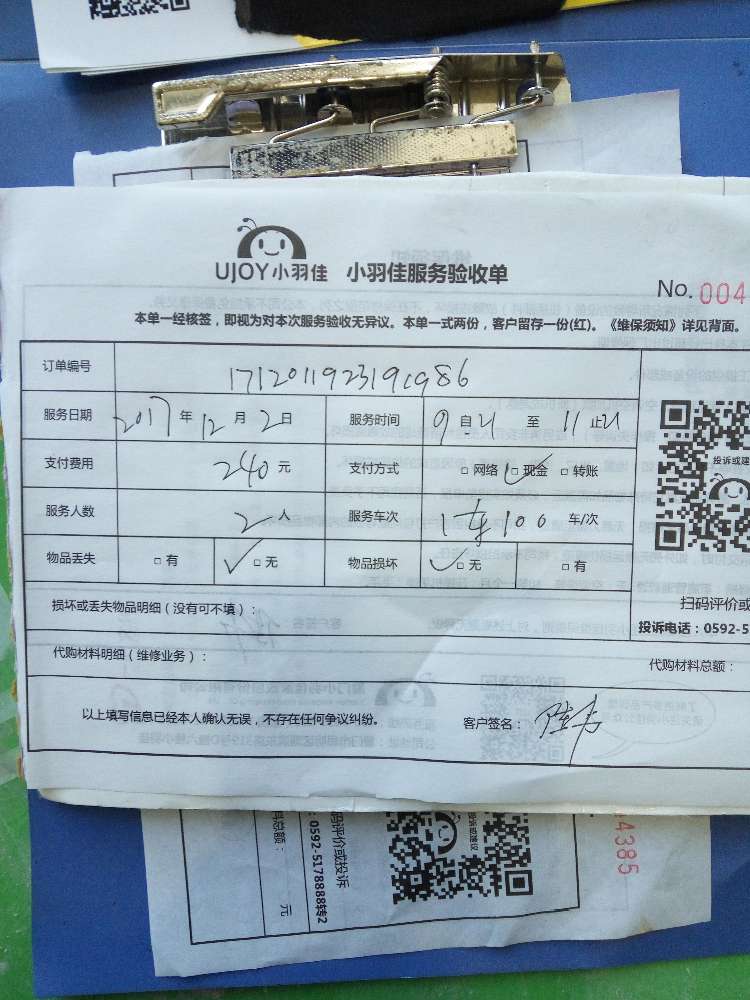 UJOY小羽佳 小羽佳服务验收单
No. 004
本单一经核签，即视为对本次服务验收无异议。本单一式两份，客户留存一份(红)。《维保须知》详见背面。
订单编号
服务日期 2017年12月2日 服务时间 9自 至 11止
支付费用 240元 支付方式 □网络 □现金 □转账
服务人数 2人 服务车次 1车100 车/次
物品丢失 □有 □无 物品损坏 □无 □有
投诉或建
损坏或丢失物品明细（没有可不填）：
扫码评价或
投诉电话：0592-5
代购材料明细（维修业务）：
代购材料总额：
以上填写信息已经本人确认无误，不存在任何争议纠纷。 客户签名：
码评价或投诉
：0592-5178888转2
料总额： 元
投诉或建议
4385